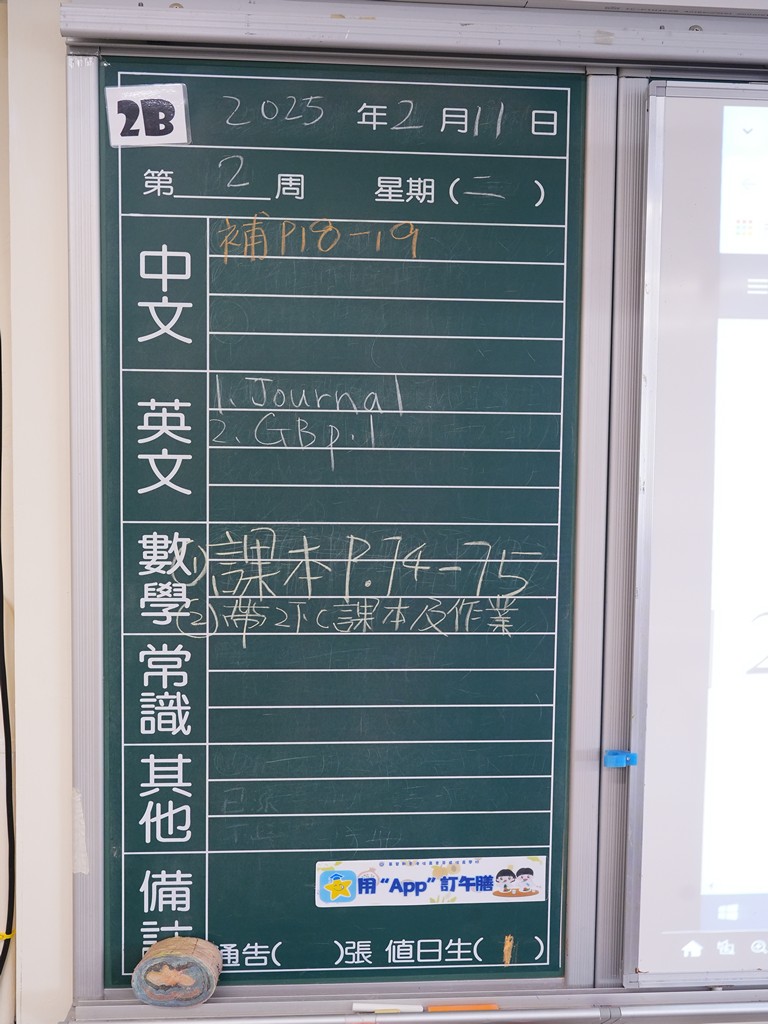 2B
2025 年 2 月 11 日
第 2 周 星期 ( 二 )
中文
補 P18-19
英文
1. Journal
2. GB p.1
數學
(1) 課本 P.74-75
(2) 帶2下C課本及作業
常識
其他
備
用“App”訂午膳
通告( )張 值日生( 1 )